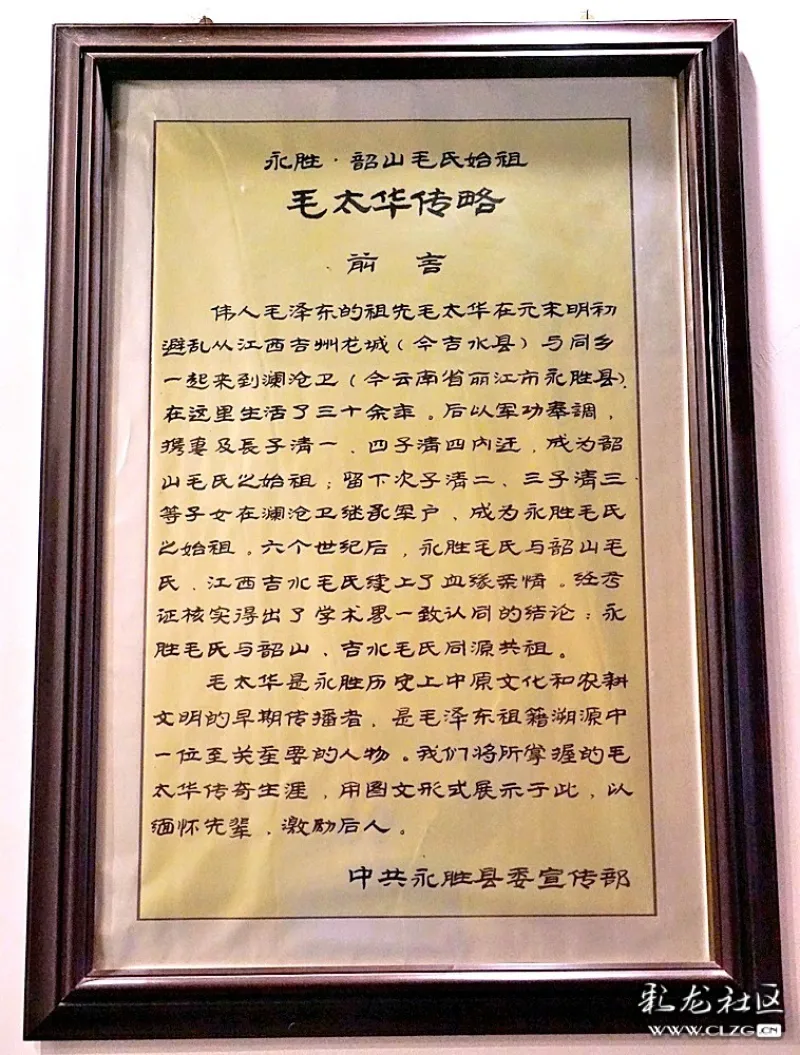 永胜·韶山毛氏始祖
毛太华传略
前言
伟人毛泽东的祖先毛太华在元末明初
避乱从江西吉州龙城(今吉水县)与同乡
一起来到澜沧卫(今云南省丽江市永胜县),
在这里生活了三十余年。后以军功奉調,
携妻及長子清一、四子清四内迁,成为韶
山毛氏之始祖;留下次子清二、三子清三
等子女在澜沧卫继承军户,成为永胜毛氏
之始祖。六个世纪后,永胜毛氏与韶山毛
氏、江西吉水毛氏续上了血缘亲情。经考
证核实得出了学术界一致认同的结论:永
胜毛氏与韶山、吉水毛氏同源共祖。
毛太华是永胜历史上中原文化和农耕
文明的早期传播者,是毛泽东祖籍溯源中
一位至关重要的人物。我们将所掌握的毛
太华传奇生涯,用图文形式展示于此,以
缅怀先辈,激励后人。
中共永胜县委宣传部
彩龙社区
WWW.CLZG.CN